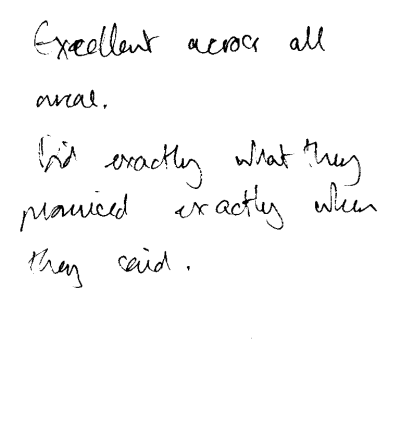 Excellent across all
areas.
Did exactly what they
promised exactly when
they said.